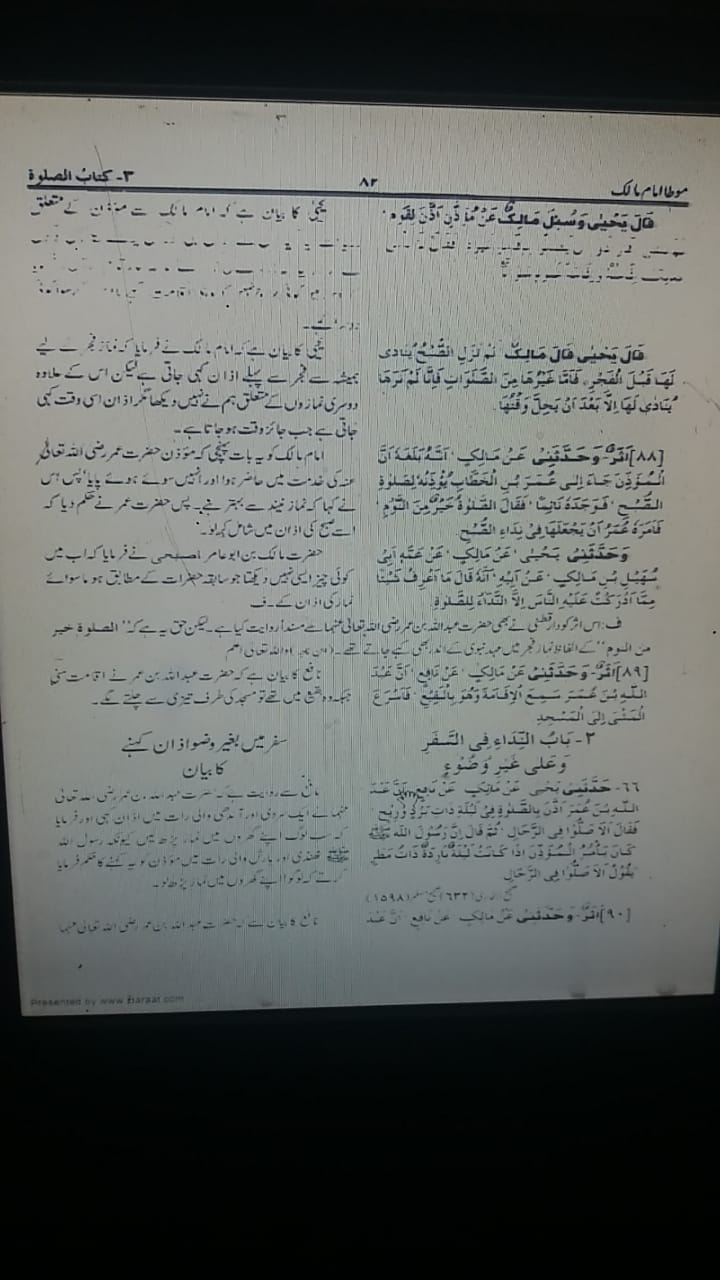 موطا امام مالک
۸۲
۳- کتاب الصلوة
قَالَ يَحْيٰى وَسُئِلَ مَالِكٌ عَنْ مُؤَذِّنٍ اَذَّنَ لِقَوْمٍ
قَالَ يَحْيٰى قَالَ مَالِكٌ لَمْ تَزَلِ الصُّبْحُ يُنَادٰى
لَهَا قَبْلَ الْفَجْرِ، فَاَمَّا غَيْرُهَا مِنَ الصَّلَوَاتِ فَاِنَّا لَمْ نَرَهَا
يُنَادٰى لَهَا اِلَّا بَعْدَ اَنْ يَحِلَّ وَقْتُهَا.
[۸۸] اَثَرٌ- وَحَدَّثَنِيْ عَنْ مَالِكٍ، اَنَّهُ بَلَغَهُ اَنَّ
الْمُؤَذِّنَ جَاءَ اِلٰى عُمَرَ بْنِ الْخَطَّابِ يُؤْذِنُهُ لِصَلٰوةِ
الصُّبْحِ، فَوَجَدَهُ نَائِمًا، فَقَالَ الصَّلٰوةُ خَيْرٌ مِنَ النَّوْمِ،
فَاَمَرَهُ عُمَرُ اَنْ يَجْعَلَهَا فِيْ نِدَاءِ الصُّبْحِ.
وَحَدَّثَنِيْ يَحْيٰى، عَنْ مَالِكٍ، عَنْ عَمِّهِ اَبِيْ
سُهَيْلِ بْنِ مَالِكٍ، عَنْ اَبِيْهِ، اَنَّهُ قَالَ مَا اَعْرِفُ شَيْئًا
مِمَّا اَدْرَكْتُ عَلَيْهِ النَّاسَ اِلَّا النِّدَاءَ لِلصَّلٰوةِ.
یحیٰی کا بیان ہے کہ امام مالک سے مؤذن کے متعلق
یحیٰی کا بیان ہے کہ امام مالک نے فرمایا کہ نماز فجر کے لیے
ہمیشہ سے فجر سے پہلے اذان کہی جاتی ہے لیکن اس کے علاوہ
دوسری نمازوں کے متعلق ہم نے نہیں دیکھا مگر اذان اسی وقت کہی
جاتی ہے جب جائز وقت ہو جاتا ہے۔
امام مالک کو یہ بات پہنچی کہ مؤذن حضرت عمر رضی اللہ تعالیٰ
عنہ کی خدمت میں حاضر ہوا اور انہیں سوئے ہوئے پایا، پس اس
نے کہا کہ نماز نیند سے بہتر ہے۔ پس حضرت عمر نے حکم دیا کہ
اسے صبح کی اذان میں شامل کر لو۔
حضرت مالک بن ابو عامر اصبحی نے فرمایا کہ اب میں
کوئی چیز ایسی نہیں دیکھتا جو سابقہ حضرات کے مطابق ہو ماسوائے
نماز کی اذان کے۔ ف
ف: اس اثر کو دار قطنی نے بھی حضرت عبداللہ بن عمر رضی اللہ تعالیٰ عنہما سے مسنداً روایت کیا ہے۔ لیکن حق یہ ہے کہ "الصلوة خیر
من النوم" کے الفاظ نماز فجر میں عہد نبوی کے اندر بھی کہے جاتے تھے۔ واللہ تعالیٰ اعلم
[۸۹] اَثَرٌ- وَحَدَّثَنِيْ عَنْ مَالِكٍ، عَنْ نَافِعٍ، اَنَّ عَبْدَ
اللّٰهِ بْنَ عُمَرَ سَمِعَ الْاِقَامَةَ وَهُوَ بِالْبَقِيْعِ، فَاَسْرَعَ
الْمَشْيَ اِلَى الْمَسْجِدِ
نافع کا بیان ہے کہ حضرت عبداللہ بن عمر نے اقامت سنی
جبکہ وہ بقیع میں تھے تو مسجد کی طرف تیزی سے چلنے لگے۔
۲- بَابُ النِّدَاءِ فِي السَّفَرِ
وَعَلٰى غَيْرِ وُضُوْءٍ
سفر میں بغیر وضو اذان کہنے
کا بیان
۶۶- حَدَّثَنِيْ يَحْيٰى عَنْ مَالِكٍ عَنْ نَافِعٍ اَنَّ عَبْدَ
اللّٰهِ بْنَ عُمَرَ اَذَّنَ بِالصَّلٰوةِ فِيْ لَيْلَةٍ ذَاتِ بَرْدٍ وَّرِيْحٍ
فَقَالَ اَلَا صَلُّوْا فِي الرِّحَالِ، ثُمَّ قَالَ اِنَّ رَسُوْلَ اللّٰهِ ﷺ
كَانَ يَاْمُرُ الْمُؤَذِّنَ اِذَا كَانَتْ لَيْلَةٌ بَارِدَةٌ ذَاتُ مَطَرٍ
يَقُوْلُ اَلَا صَلُّوْا فِي الرِّحَالِ.
صحیح البخاری (۶۳۲) صحیح مسلم (۱۵۹۸)
نافع سے روایت ہے کہ حضرت عبداللہ بن عمر رضی اللہ تعالیٰ
عنہما نے ایک سردی اور آندھی والی رات میں اذان کہی اور فرمایا
کہ سب لوگ اپنے گھروں میں نماز پڑھ لیں کیونکہ رسول اللہ
ﷺ ٹھنڈی اور بارش والی رات میں مؤذن کو یہ کہنے کا حکم فرمایا
کرتے کہ لوگو! اپنے گھروں میں نماز پڑھ لو۔
[۹۰] اَثَرٌ- وَحَدَّثَنِيْ عَنْ مَالِكٍ عَنْ نَافِعٍ اَنَّ عَبْدَ
نافع کا بیان ہے کہ حضرت عبداللہ بن عمر رضی اللہ تعالیٰ عنہما
Presented by www.ziaraat.com